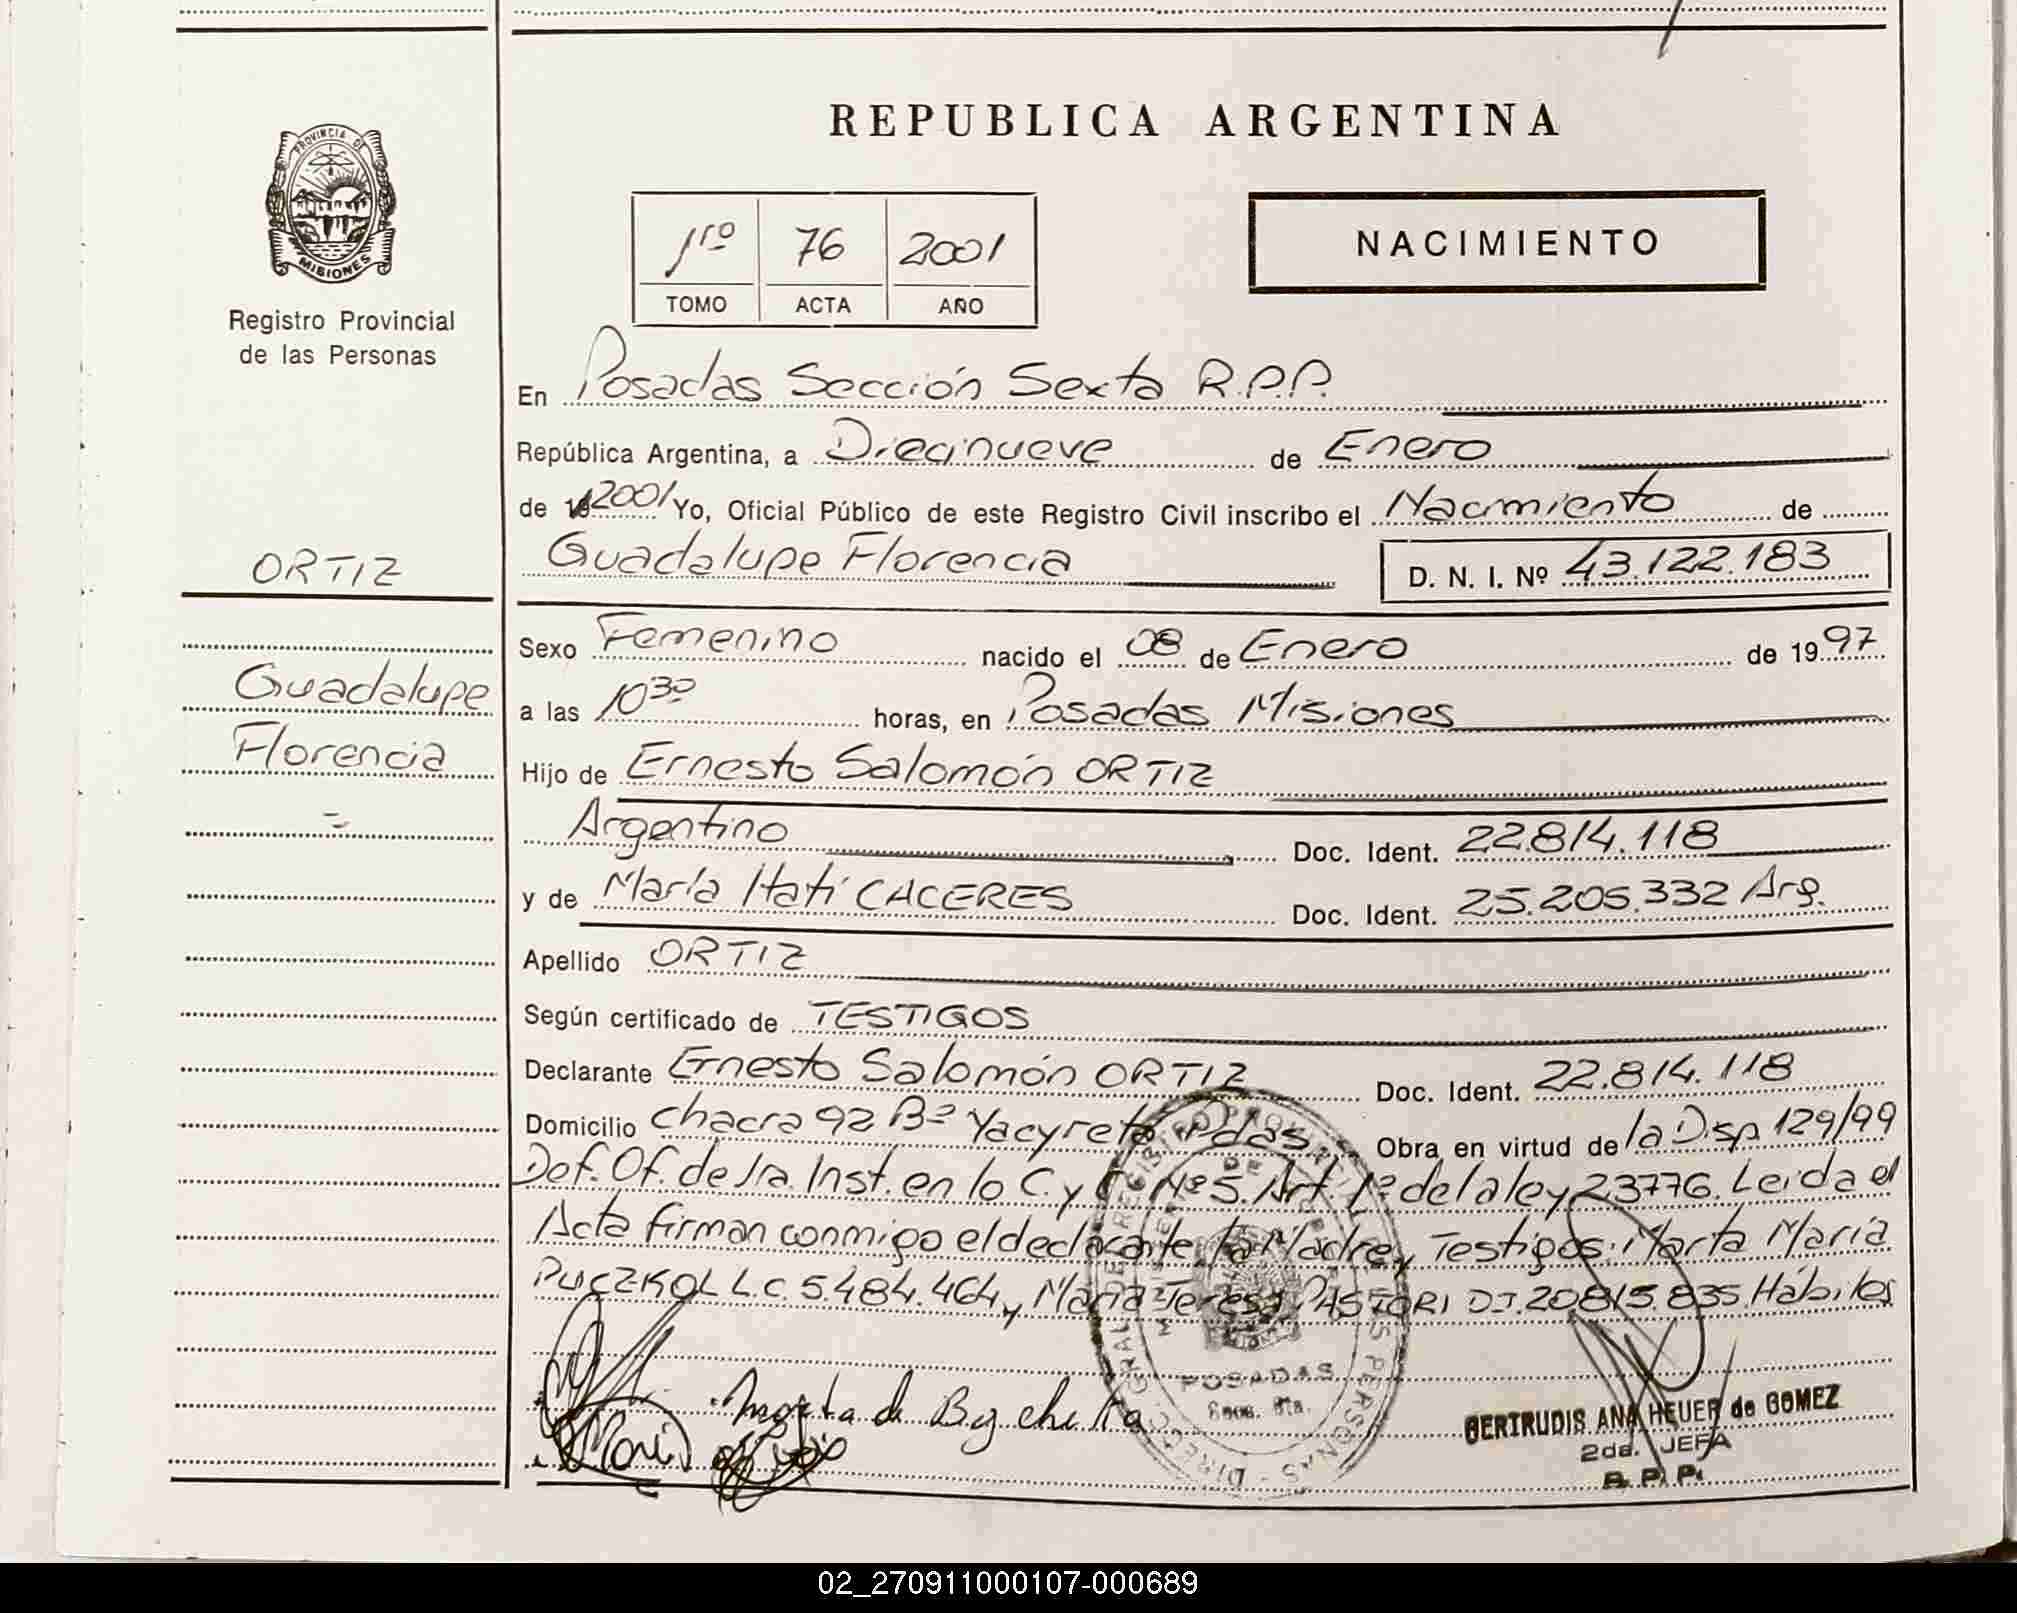 REPUBLICA ARGENTINA
PROVINCIA DE
MISIONES
Registro Provincial
de las Personas
1ro 76 2001
TOMO ACTA AÑO
NACIMIENTO
En Posadas Sección Sexta R.P.P.
República Argentina, a Diecinueve de Enero
de 2001 Yo, Oficial Público de este Registro Civil inscribo el Nacimiento de
ORTIZ
Guadalupe Florencia D. N. I. Nº 43.122.183
Sexo Femenino nacido el 08 de Enero de 1997
Guadalupe
a las 10 30 horas, en Posadas Misiones
Florencia
Hijo de Ernesto Salomón ORTIZ
Argentino Doc. Ident. 22.814.118
y de María Itatí CACERES Doc. Ident. 25.205.332 Arg.
Apellido ORTIZ
Según certificado de TESTIGOS
Declarante Ernesto Salomón ORTIZ Doc. Ident. 22.814.118
Domicilio Chacra 92 Bº Yacyreta Pdas Obra en virtud de la Disp 129/99
Def. Of. de 1ra. Inst. en lo C. y C. Nº 5. Art. 1º de la ley 23776. Leida el
Acta firman conmigo el declarante, la Madre y Testigos: Marta María
PUCZKOL L.C. 5.484.464 y María Teresa PASTORI DJ. 20.815.835 Hábiles
POSADAS
Secc. 6ta.
GERTRUDIS ANA HEUER de GOMEZ
2da. JEFA
R. P. P.
02_270911000107-000689